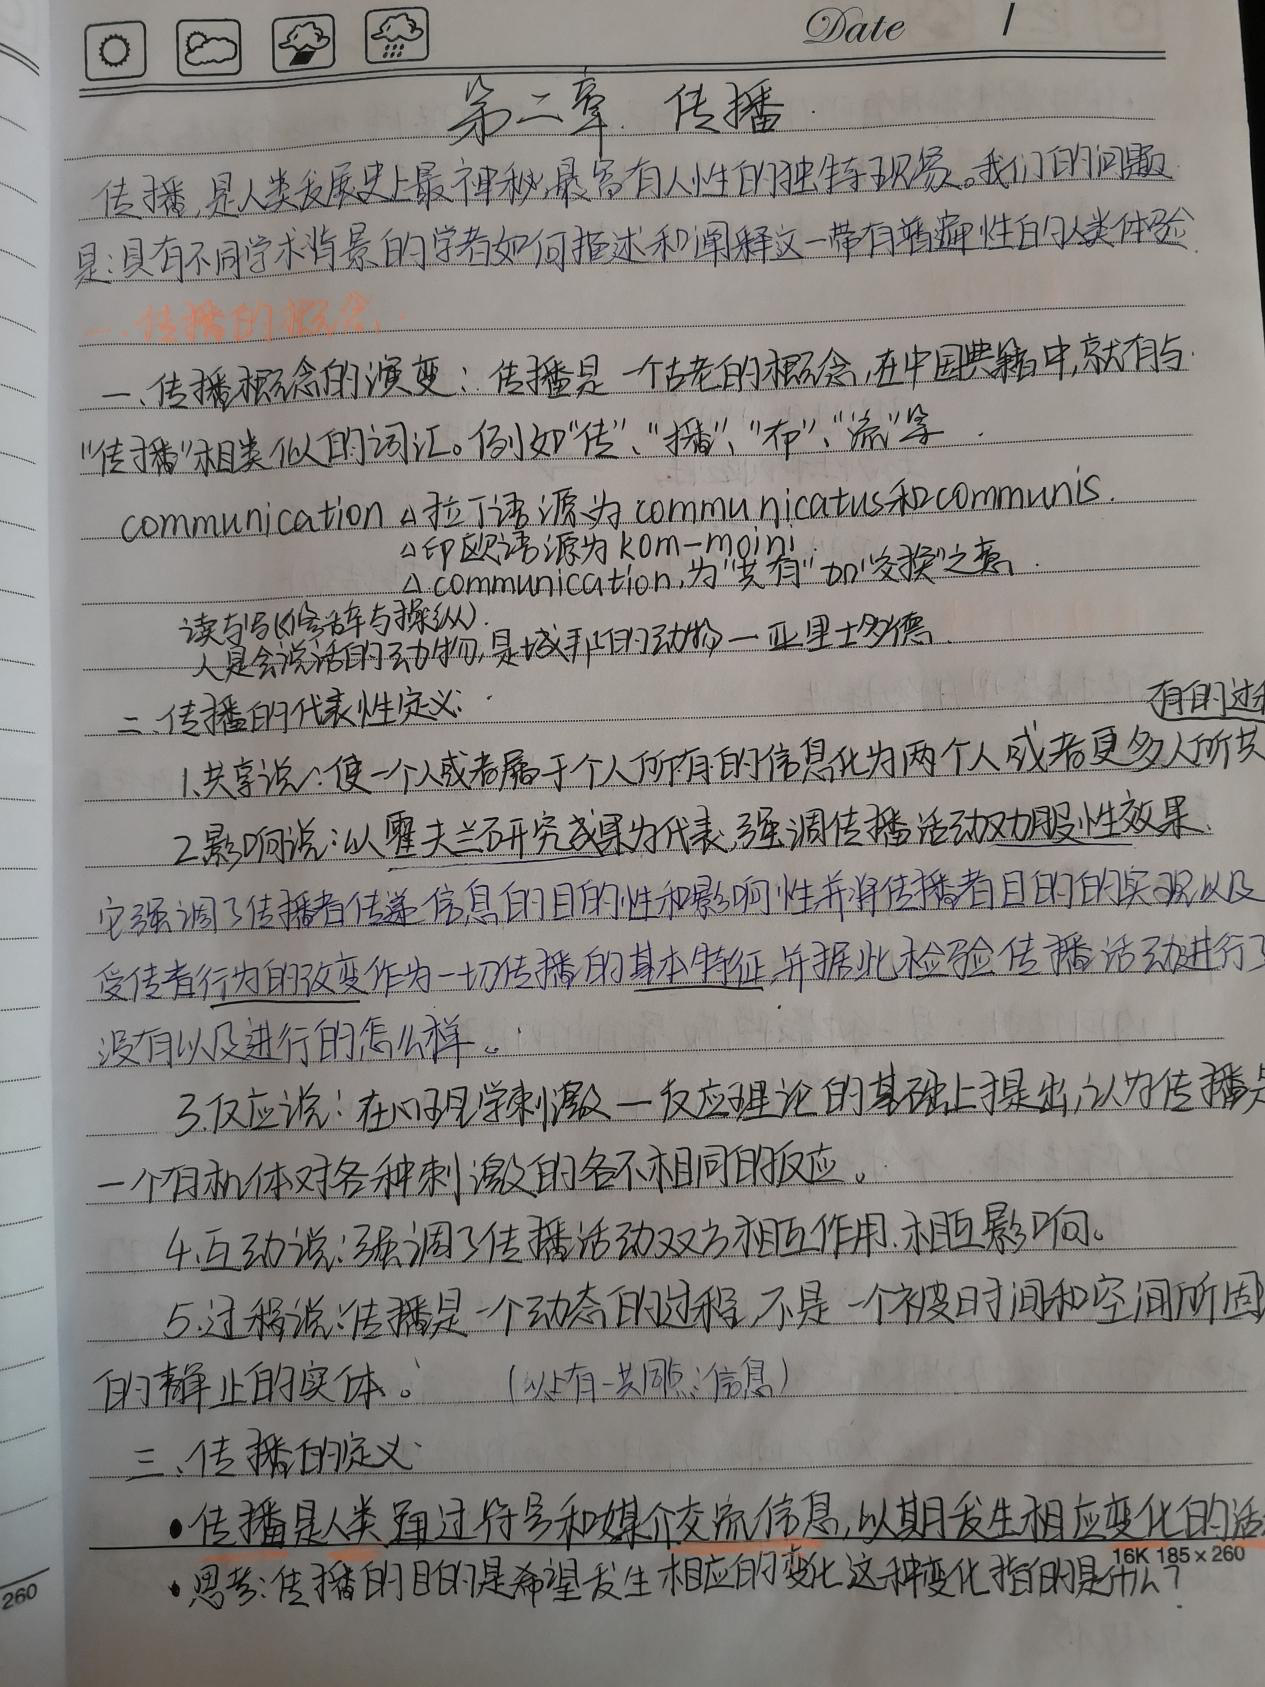 Date 1
第二章 传播
传播,是人类发展史上最神秘,最富有人性的独特现象。我们的问题
是:具有不同学术背景的学者如何描述和阐释这一带有普遍性的人类体验
一、传播的概念
一、传播概念的演变:传播是一个古老的概念,在中国典籍中,就有与
“传播”相类似的词汇。例如“传”、“播”、“布”、“流”等
communication △拉丁语源为communicatus和communis.
△印欧语源为kom-moini
△communication,为“共有”和“交换”之意
读与写
人是会说话的动物,是城邦的动物—亚里士多德
二、传播的代表性定义:
有的过程
1.共享说:使一个人或者属于个人所有的信息化为两个人或者更多人所共
2.影响说:以霍夫兰研究成果为代表,强调传播活动劝服性效果.
它强调了传播者传递信息的目的性和影响性并将传播者目的的实现以及
受传者行为的改变作为一切传播的基本特征,并据此检验传播活动进行了
没有以及进行的怎么样。
3.反应说:在心理学刺激—反应理论的基础上提出,认为传播是
一个有机体对各种刺激的各不相同的反应。
4.互动说:强调了传播活动双方相互作用.相互影响。
5.过程说:传播是一个动态的过程,不是一个被时间和空间所固
的静止的实体。 (以上有一共同点:信息)
三、传播的定义
•传播是人类通过符号和媒介交流信息,以期发生相应变化的活
16K 185×260
•思考:传播的目的是希望发生相应的变化,这种变化指的是什么?
260